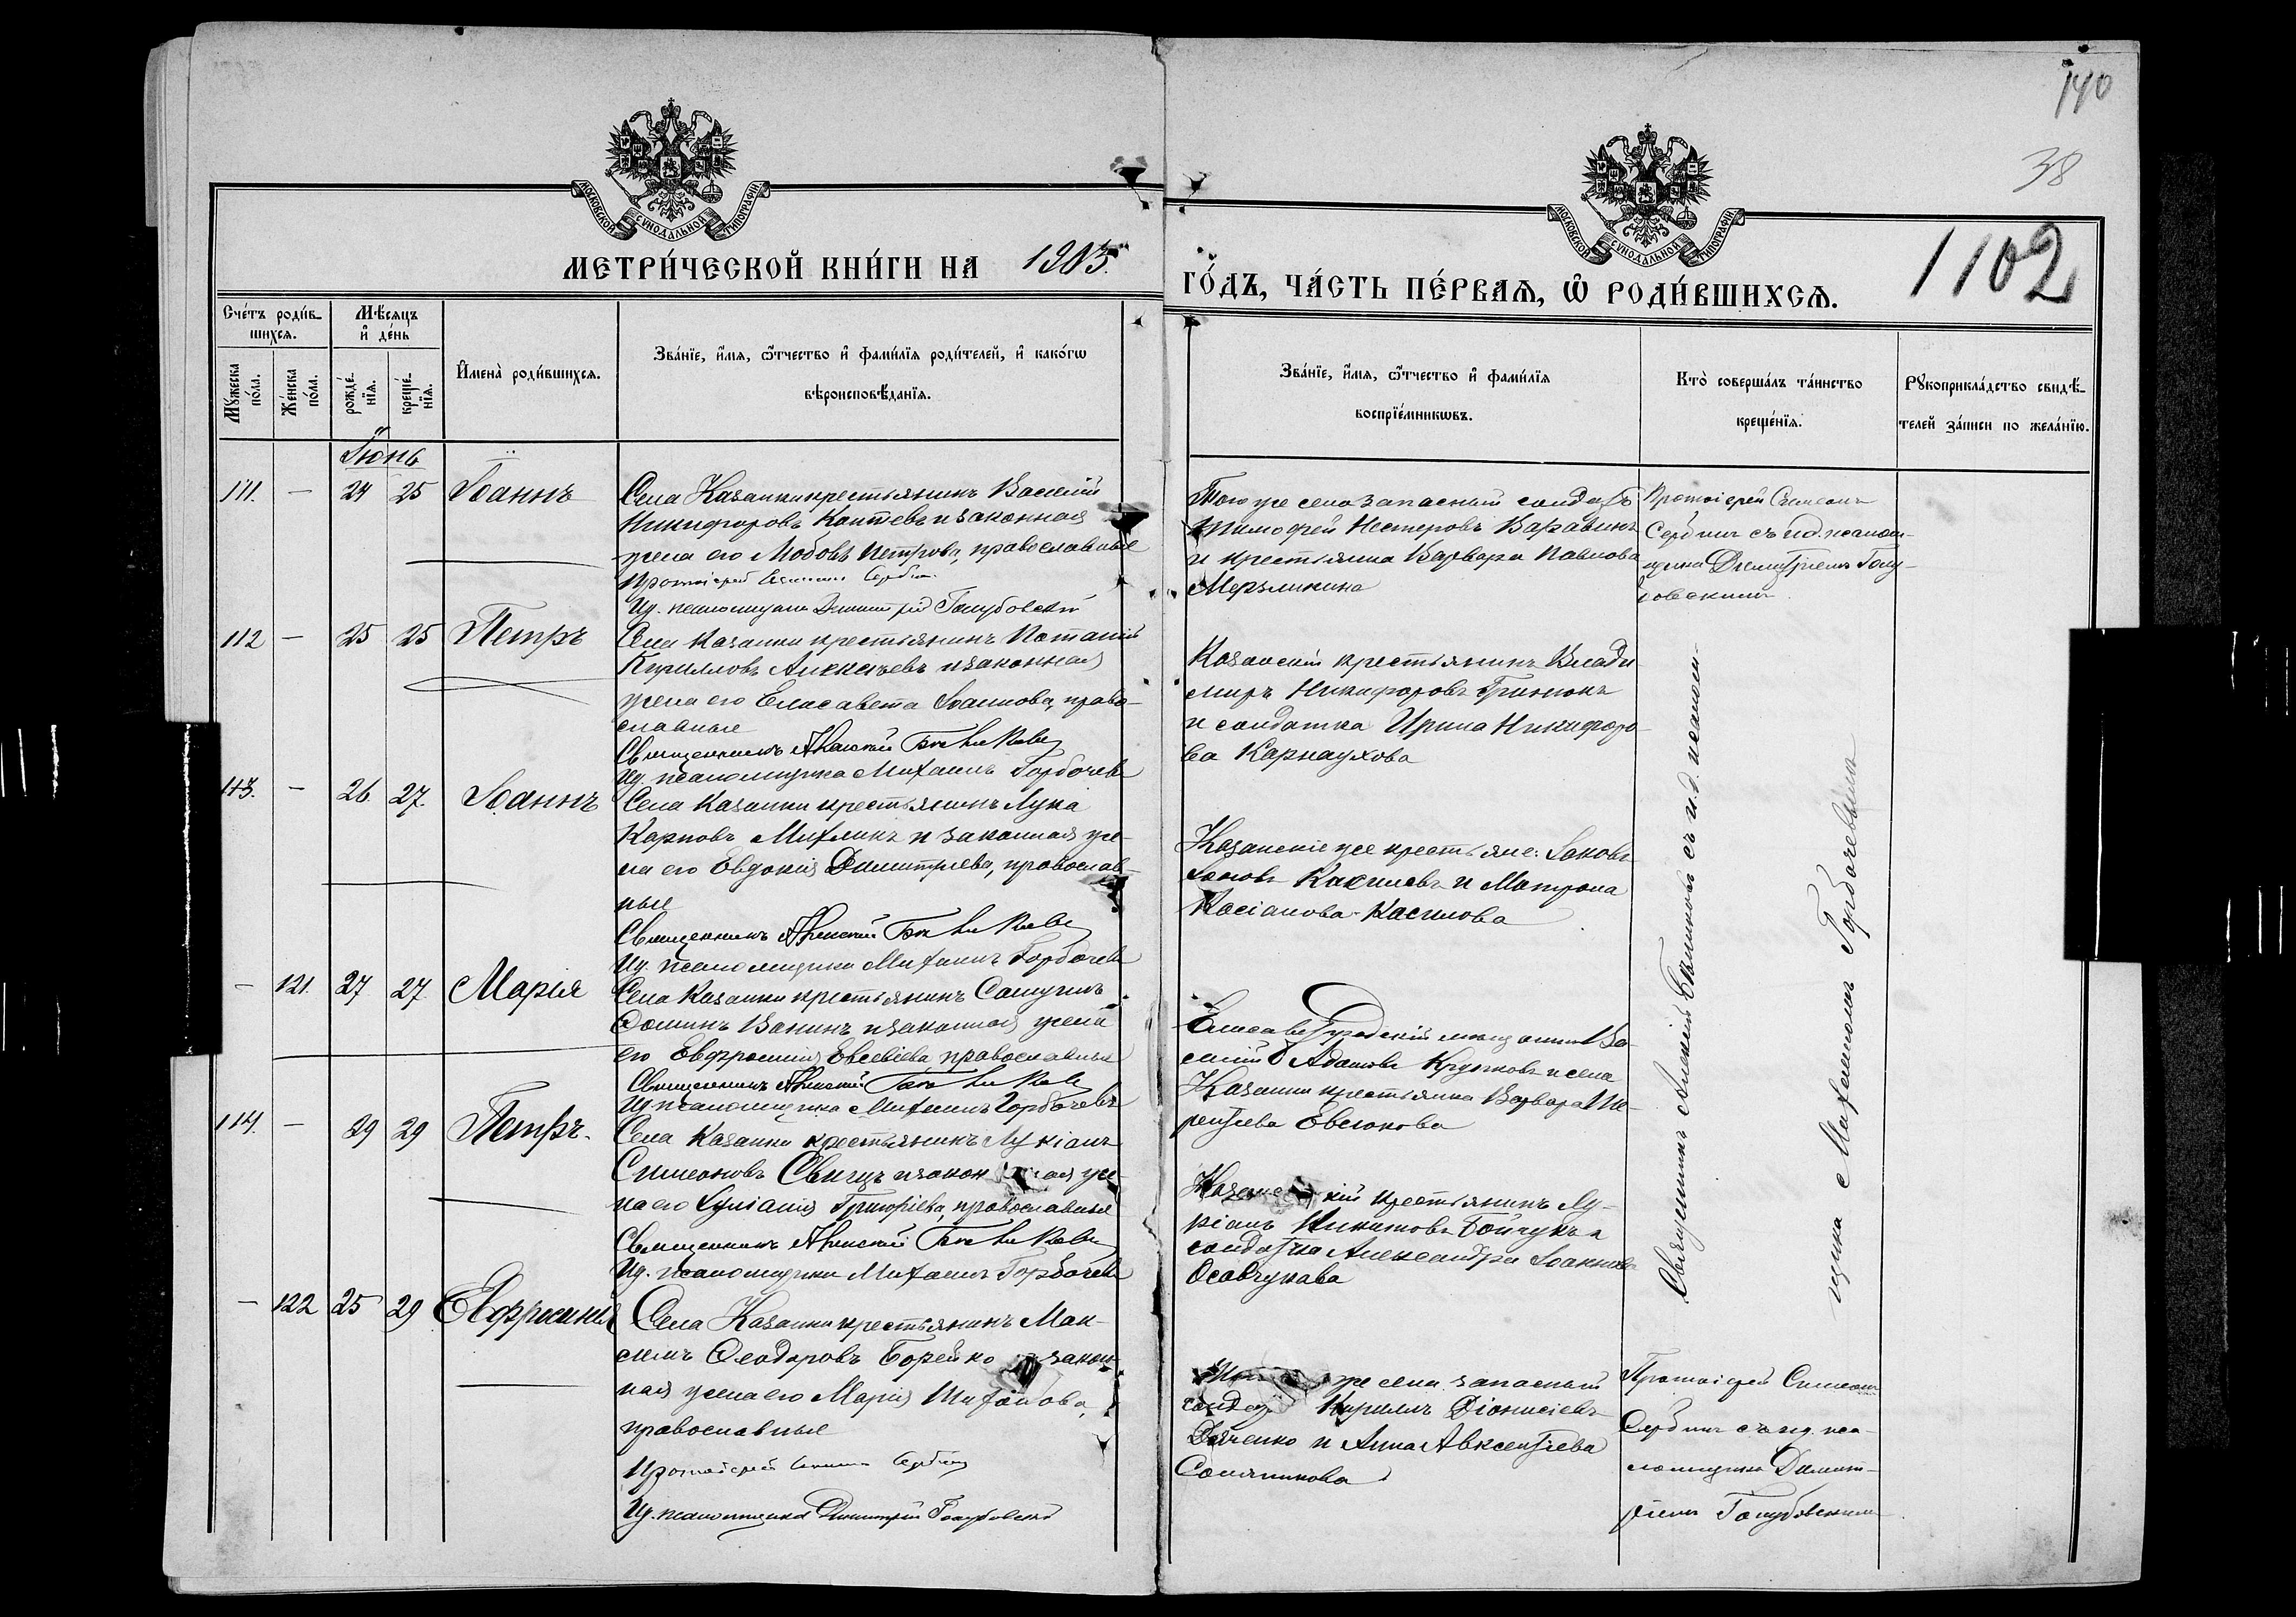 140
38
1102
МОСКОВСКОЙ СУНОДАЛЬНОЙ ТИПОГРАФІИ
МОСКОВСКОЙ СУНОДАЛЬНОЙ ТИПОГРАФІИ
МЕТРИ́ЧЕСКОЙ КНИ́ГИ НА 1903.
ГО́ДЪ, ЧА́СТЬ ПЕ́РВАѦ, Ѡ РОДИ́ВШИХСѦ.
Сче́тъ роди́в-
шихсѧ.
Мѣ́сѧцъ
и҆ де́нь
Мꙋ́жеска по́ла.
Же́нска по́ла.
рожде́-нїѧ.
креще́-нїѧ.
И҆мена̀ роди́вшихсѧ.
Зва́нїе, и҆́мѧ, ѻ҆́тчество и҆ фами́лїѧ роди́телей, и҆ како́гѡ
вѣроисповѣ́данїѧ.
Зва́нїе, и҆́мѧ, ѻ҆́тчество и҆ фами́лїѧ
воспрїе́мникѡвъ.
Кто̀ соверша́лъ та́инство
креще́нїѧ.
Рꙋкоприкла́дство свидѣ́-
телей за́писи по жела́нїю.
Іюнь
111. — 24 25 Іоаннъ
Села Казанки крестьянинъ Василій
Никифоровъ Коптевъ и законная
жена его Любовь Петрова, православные
Протоіерей Симеонъ Сербин
И.д. псаломщика Димитрій Голубовскій
Того же села запасный солдатъ
Тимофей Нестеровъ Варавинъ
и крестьянка Варвара Павлова
Мерзликина
Протоіерей Симеонъ
Сербинъ съ и.д. псалом-
щика Димитріемъ Голу-
бовскимъ.
112 — 25 25 Петръ
Села Казанки крестьянинъ Потапій
Кирилловъ Алексѣевъ и законная
жена его Елисавета Іоаннова, право-
славные
Священникъ Алексій
И.д. псаломщика Михаилъ Горбачевъ
Казанскій крестьянинъ Влади
миръ Никифоровъ Гринюкъ
и солдатка Ирина Никифоро-
ва Карнаухова
113. — 26. 27. Іоаннъ
Села Казанки крестьянинъ Лука
Карповъ Михлинъ и законная же-
на его Евдокія Димитріева, православ-
ные
Священникъ Алексій
И.д. псаломщика Михаилъ Горбачевъ
Казанскіе же крестьяне: Іаковъ
Іаковъ Касиловъ и Матрона
Касіанова Касилова
— 121. 27 27. Марія
Села Казанки крестьянинъ Самуилъ
Ѳоминъ Ванинъ и законная жена
его Евфросинія Евсевіева православные
Священникъ Алексій
И.д. псаломщика Михаилъ Горбачевъ
Елисаветградскій мѣщанинъ Ва-
силій Адамовъ Крючковъ и села
Казанки крестьянка Варвара Те-
рентіева Евсюкова
114. — 29 29 Петръ.
Села Казанки крестьянинъ Лукіанъ
Симеоновъ Свищъ и законная же-
на его Іуліанія Григоріева, православные
Священникъ Алексій
И.д. псаломщика Михаилъ Горбачевъ
Казанскій крестьянинъ Лу-
кіанъ Никитовъ Бойчукъ и
солдатка Александра Іоаннова
Осавчукова
Священникъ Алексій съ и.д. псалом-
щика Михаиломъ Горбачевымъ
— 122 25 29 Евфросинія
Села Казанки крестьянинъ Мак-
симъ Ѳеодоровъ Борейко и закон-
ная жена его Марія Тихонова,
православные
Протоіерей Симеонъ Сербин
И.д. псаломщика Димитрій Голубовскій
Того же села запасный
солдатъ Кириллъ Діонисіевъ
Дяченко и Анна Авксентіева
Солянникова
Протоіерей Симеонъ
Сербинъ съ и.д. пса-
ломщика Димит-
ріемъ Голубовскимъ